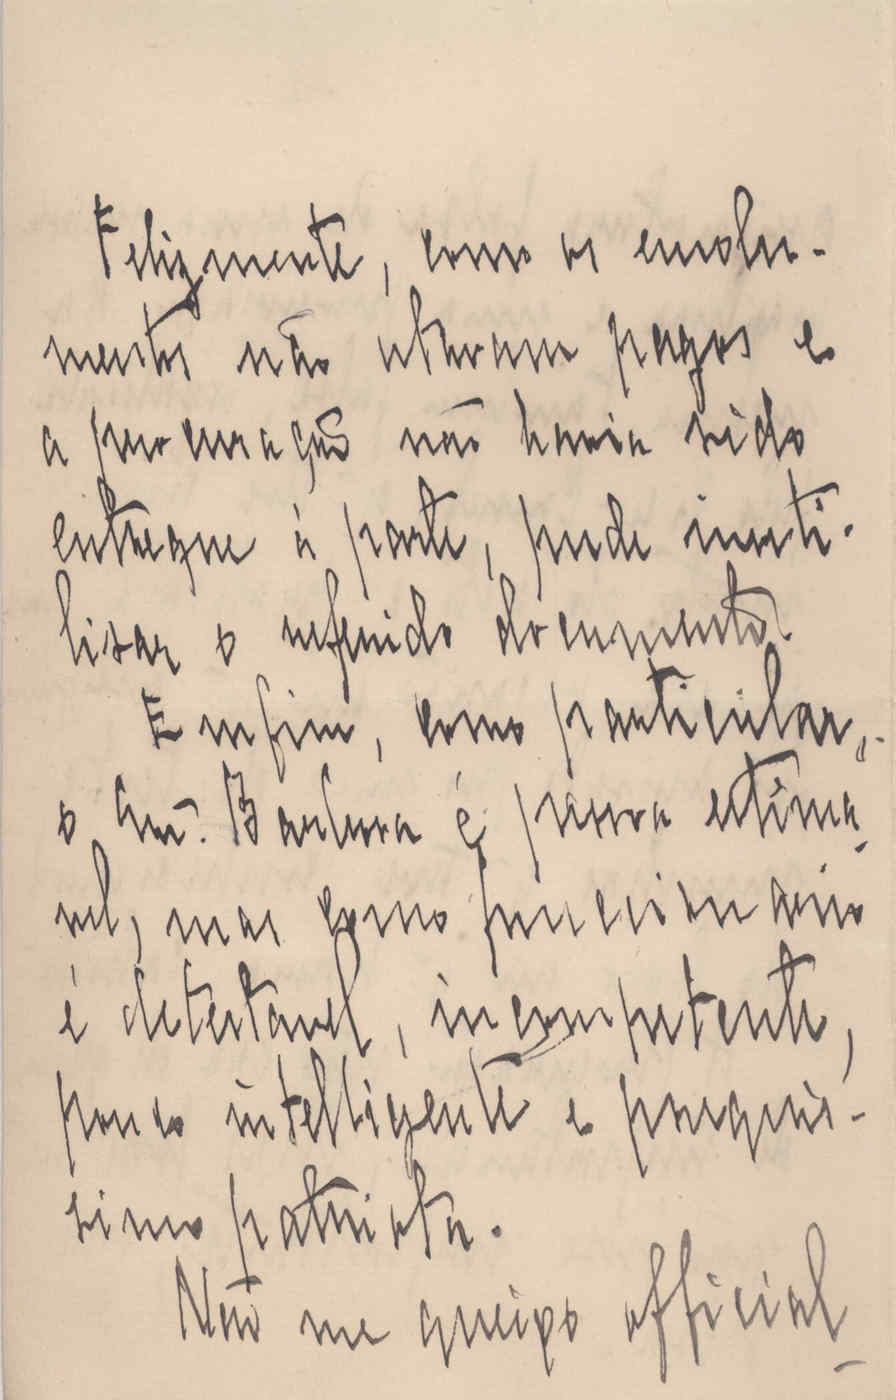 Felizmente, como os emolu-
mentos não estavam pagos e
a procuração não havia sido
entregue á parte, pude inuti-
lisar o referido documento.
Emfim, como particular,
o Snr. Barbosa é pessoa estima-
vel, mas como funccionario
é detestavel, incompetente,
pouco intelligente e pouquis-
simo patriota.
Não me queixo official-